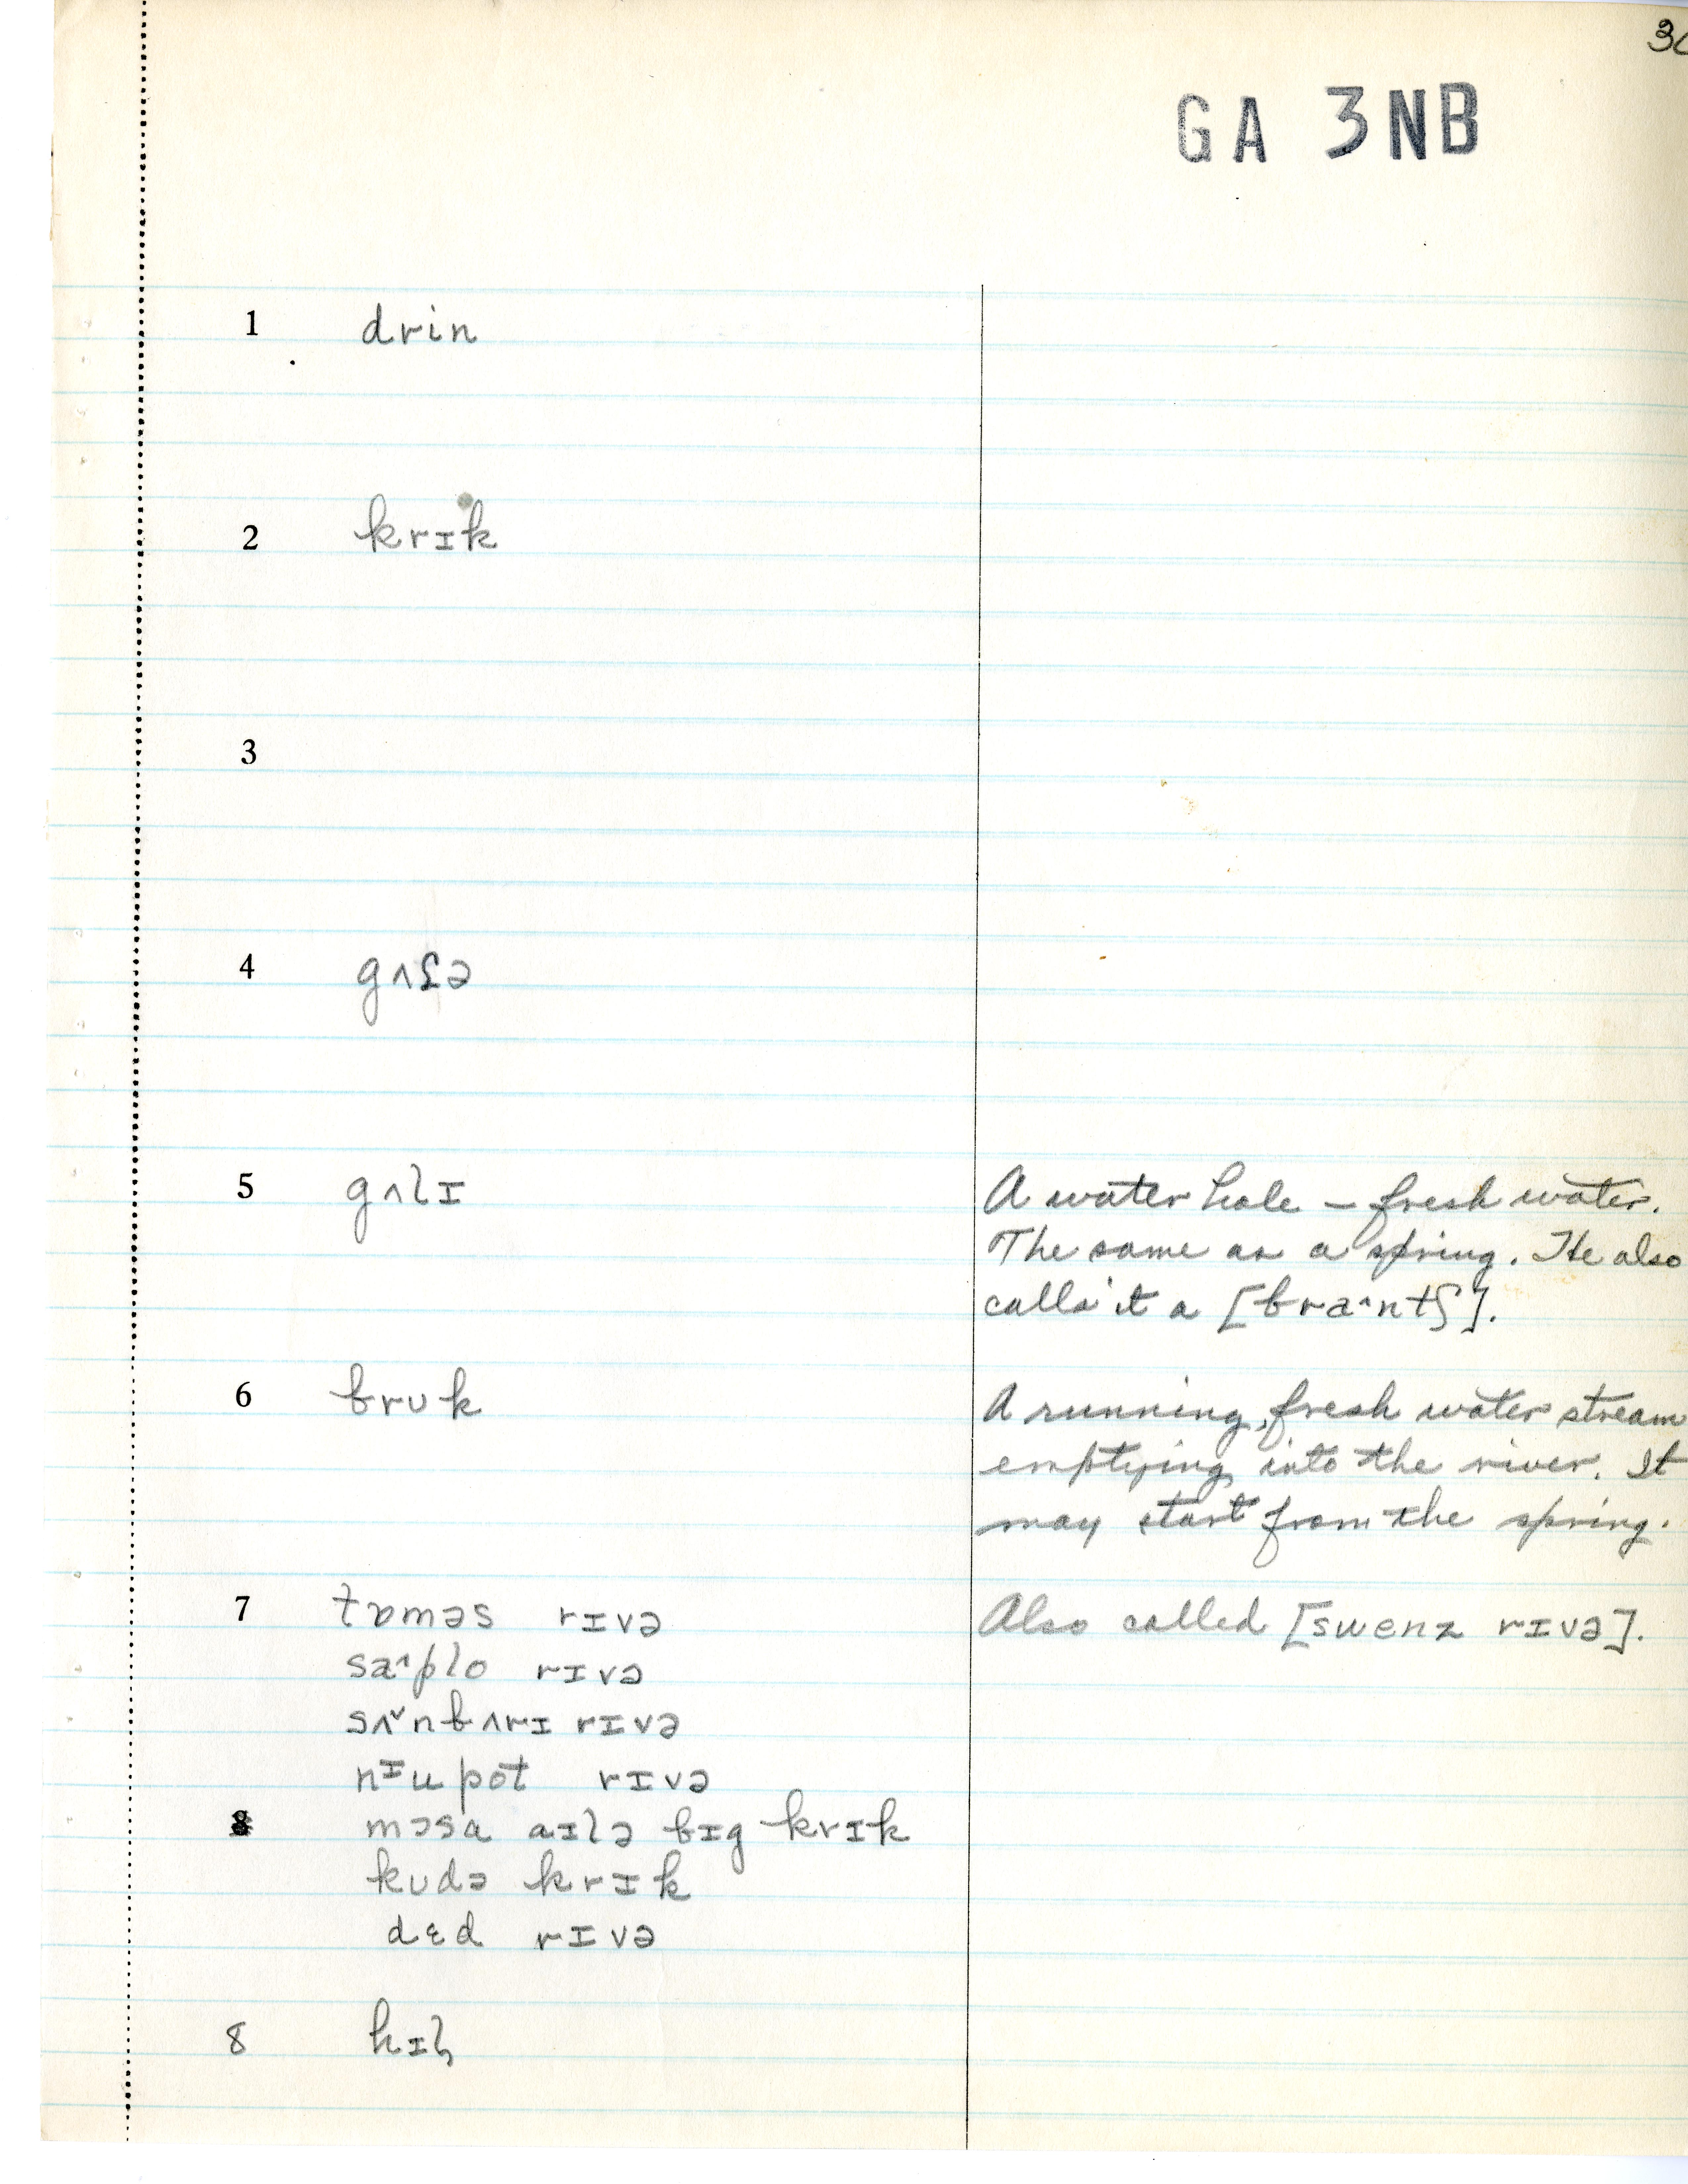 30
GA 3NB
1 drin
2 krɪk
3
4
5 gʌlɪ
A water hole – fresh water.
The same as a spring. He also
calls it a [braˆntʃ].
6 brʊk
A running, fresh water stream
emptying into the river. It
may start from the spring.
7 tɒməs rɪvə
Also called [swenz rɪvə].
saˆplo rɪvə
sʌˇnbʌrɪ rɪvə
nɪupot rɪvə
8 mɔsa aɪlə bɪg krɪk
kudə krɪk
dɛd rɪvə
8 hɪl